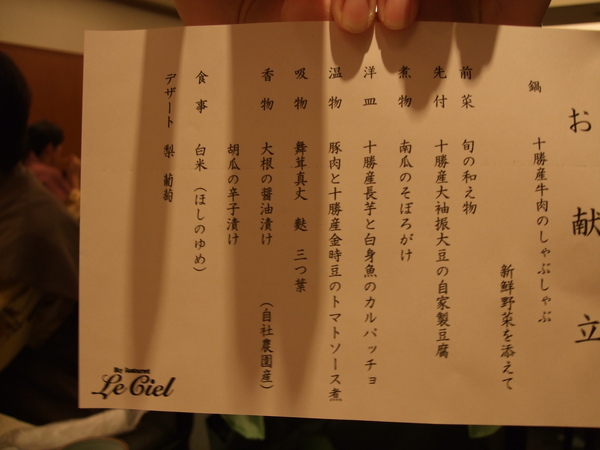 お献立
鍋 十勝産牛肉のしゃぶしゃぶ
新鮮野菜を添えて
前菜 旬の和え物
先付 十勝産大袖振大豆の自家製豆腐
煮物 南瓜のそぼろがけ
洋皿 十勝産長芋と白身魚のカルパッチョ
温物 豚肉と十勝産金時豆のトマトソース煮
吸物 舞茸真丈 麩 三つ葉
香物 大根の醤油漬け (自社農園産)
胡瓜の辛子漬け
食事 白米 (ほしのゆめ)
デザート 梨 葡萄
Sky Restaurant
Le Ciel